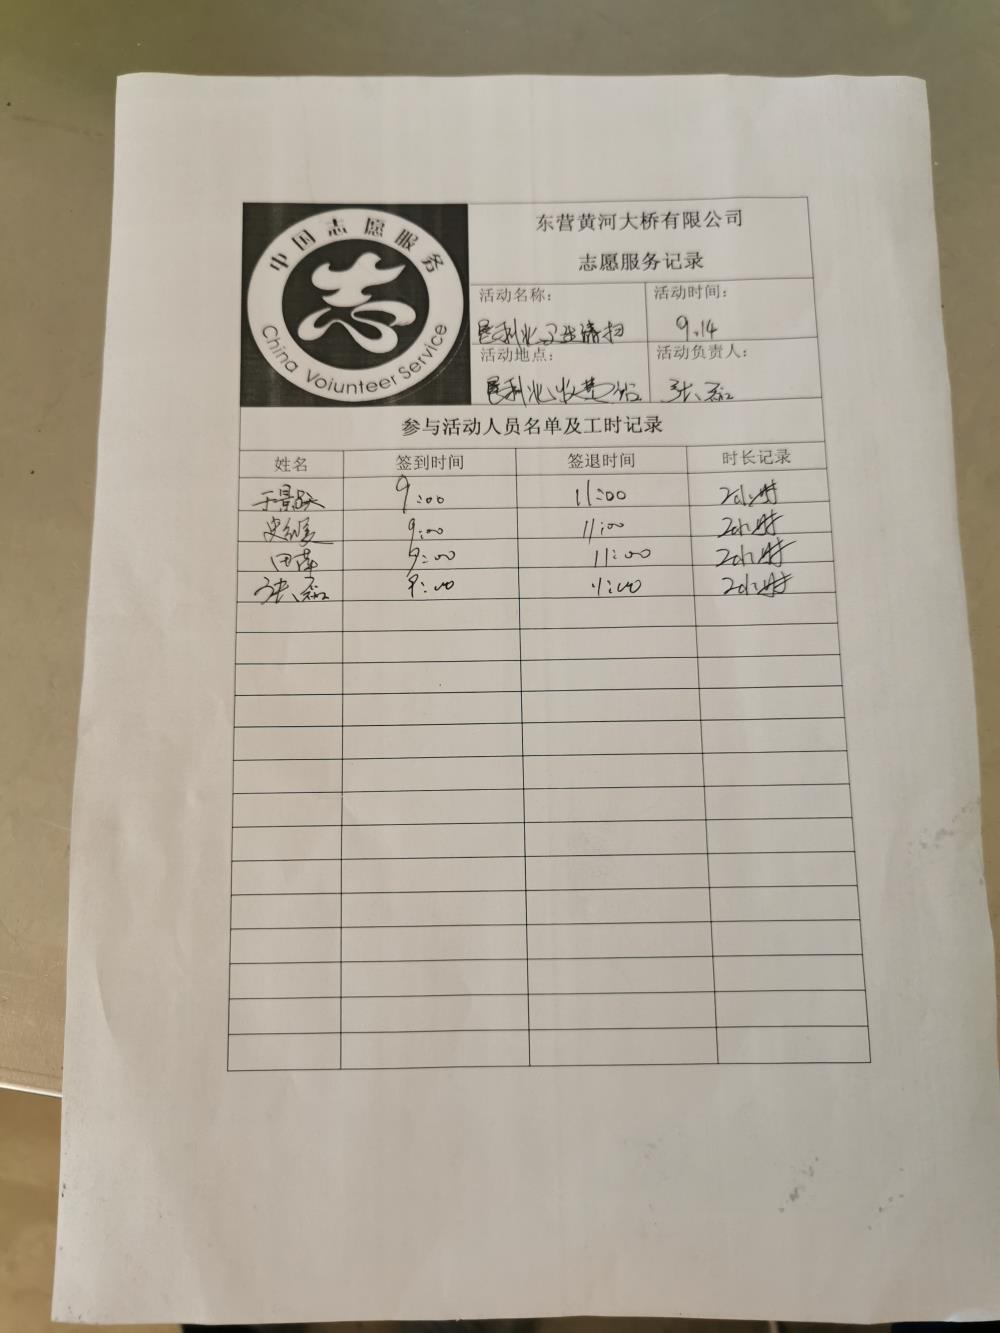 中国志愿服务
志
China Voiunteer Service
东营黄河大桥有限公司
志愿服务记录
活动名称：
垦利北卫生清扫
活动时间：
9.14
活动地点：
垦利北收费站
活动负责人：
张
参与活动人员名单及工时记录
姓名 签到时间 签退时间 时长记录
于景跃 9:00 11:00 2小时
史 9:00 11:00 2小时
田萍 9:00 11:00 2小时
张 9:00 11:00 2小时